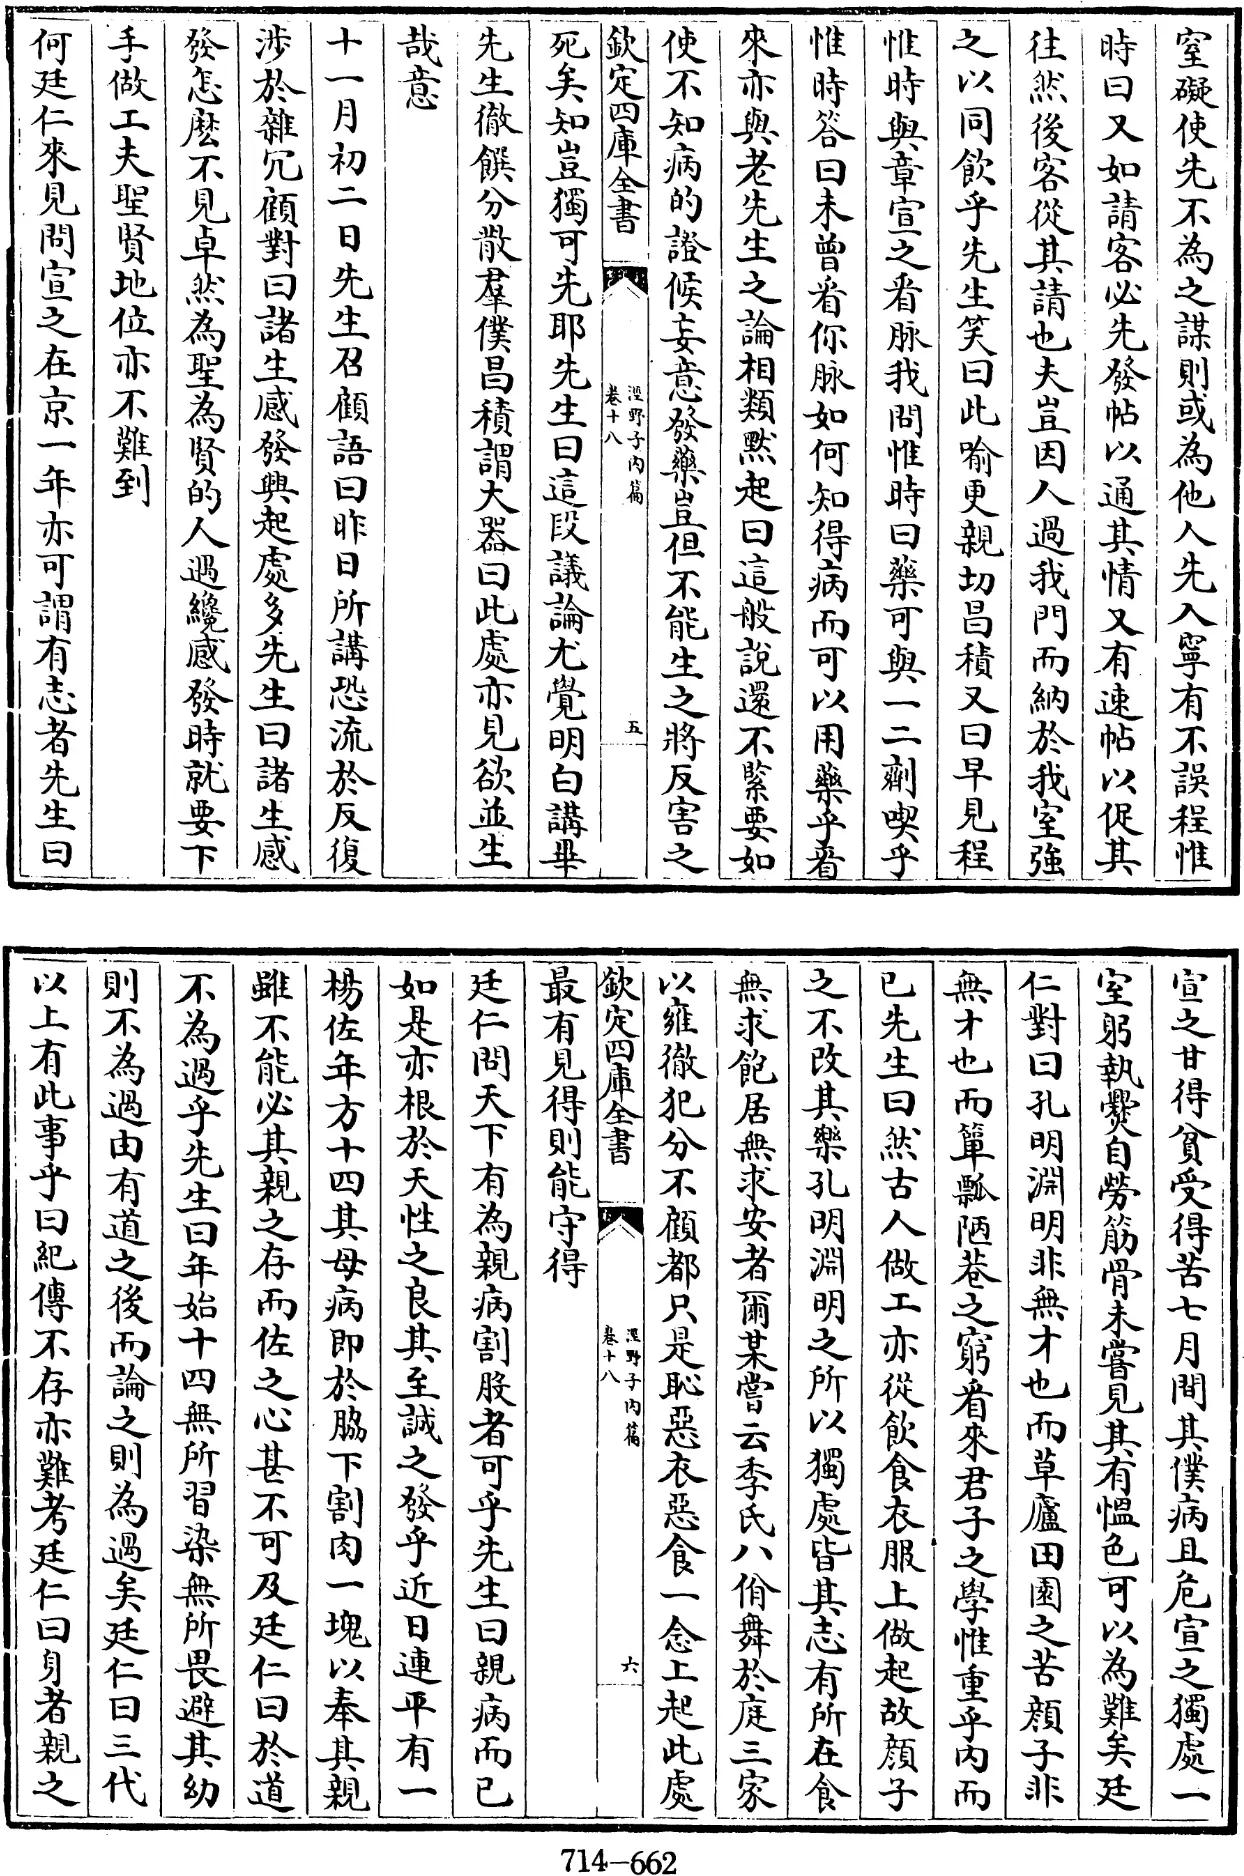 窒礙使先不為之謀則或為他人先入寧有不誤程惟
時曰又如請客必先發帖以通其情又有速帖以促其
往然後客從其請也夫豈因人過我門而納於我室強
之以同飲乎先生笑曰此喻更親切昌積又曰早見程
惟時與章宣之看脉我問惟時曰藥可與一二劑喫乎
惟時答曰未曾看你脉如何知得病而可以用藥乎看
來亦與老先生之論相類黙起曰這般說還不緊要如
使不知病的證候妄意發藥豈但不能生之將反害之
欽定四庫全書
涇野子內篇
卷十八
五
死矣知豈獨可先耶先生曰這段議論尤覺明白講畢
先生徹饌分散羣僕昌積謂大器曰此處亦見欲並生
哉意
十一月初二日先生召顧語曰昨日所講恐流於反復
涉於雜冗顧對曰諸生感發興起處多先生曰諸生感
發怎麽不見卓然為聖為賢的人遇纔感發時就要下
手做工夫聖賢地位亦不難到
何廷仁來見問宣之在京一年亦可謂有志者先生曰
宣之甘得貧受得苦七月間其僕病且危宣之獨處一
室躬執爨自勞筋骨未嘗見其有慍色可以為難矣廷
仁對曰孔明淵明非無才也而草廬田園之苦顔子非
無才也而簞瓢陋巷之窮看來君子之學惟重乎內而
已先生曰然古人做工亦從飲食衣服上做起故顔子
之不改其樂孔明淵明之所以獨處皆其志有所在食
無求飽居無求安者爾某嘗云季氏八佾舞於庭三家
以雍徹犯分不顧都只是恥惡衣惡食一念上起此處
欽定四庫全書
涇野子內篇
卷十八
六
最有見得則能守得
廷仁問天下有為親病割股者可乎先生曰親病而已
如是亦根於天性之良其至誠之發乎近日連平有一
楊佐年方十四其母病即於脇下割肉一塊以奉其親
雖不能必其親之存而佐之心甚不可及廷仁曰於道
不為過乎先生曰年始十四無所習染無所畏避其幼
則不為過由有道之後而論之則為過矣廷仁曰三代
以上有此事乎曰紀傳不存亦難考廷仁曰身者親之
714—662